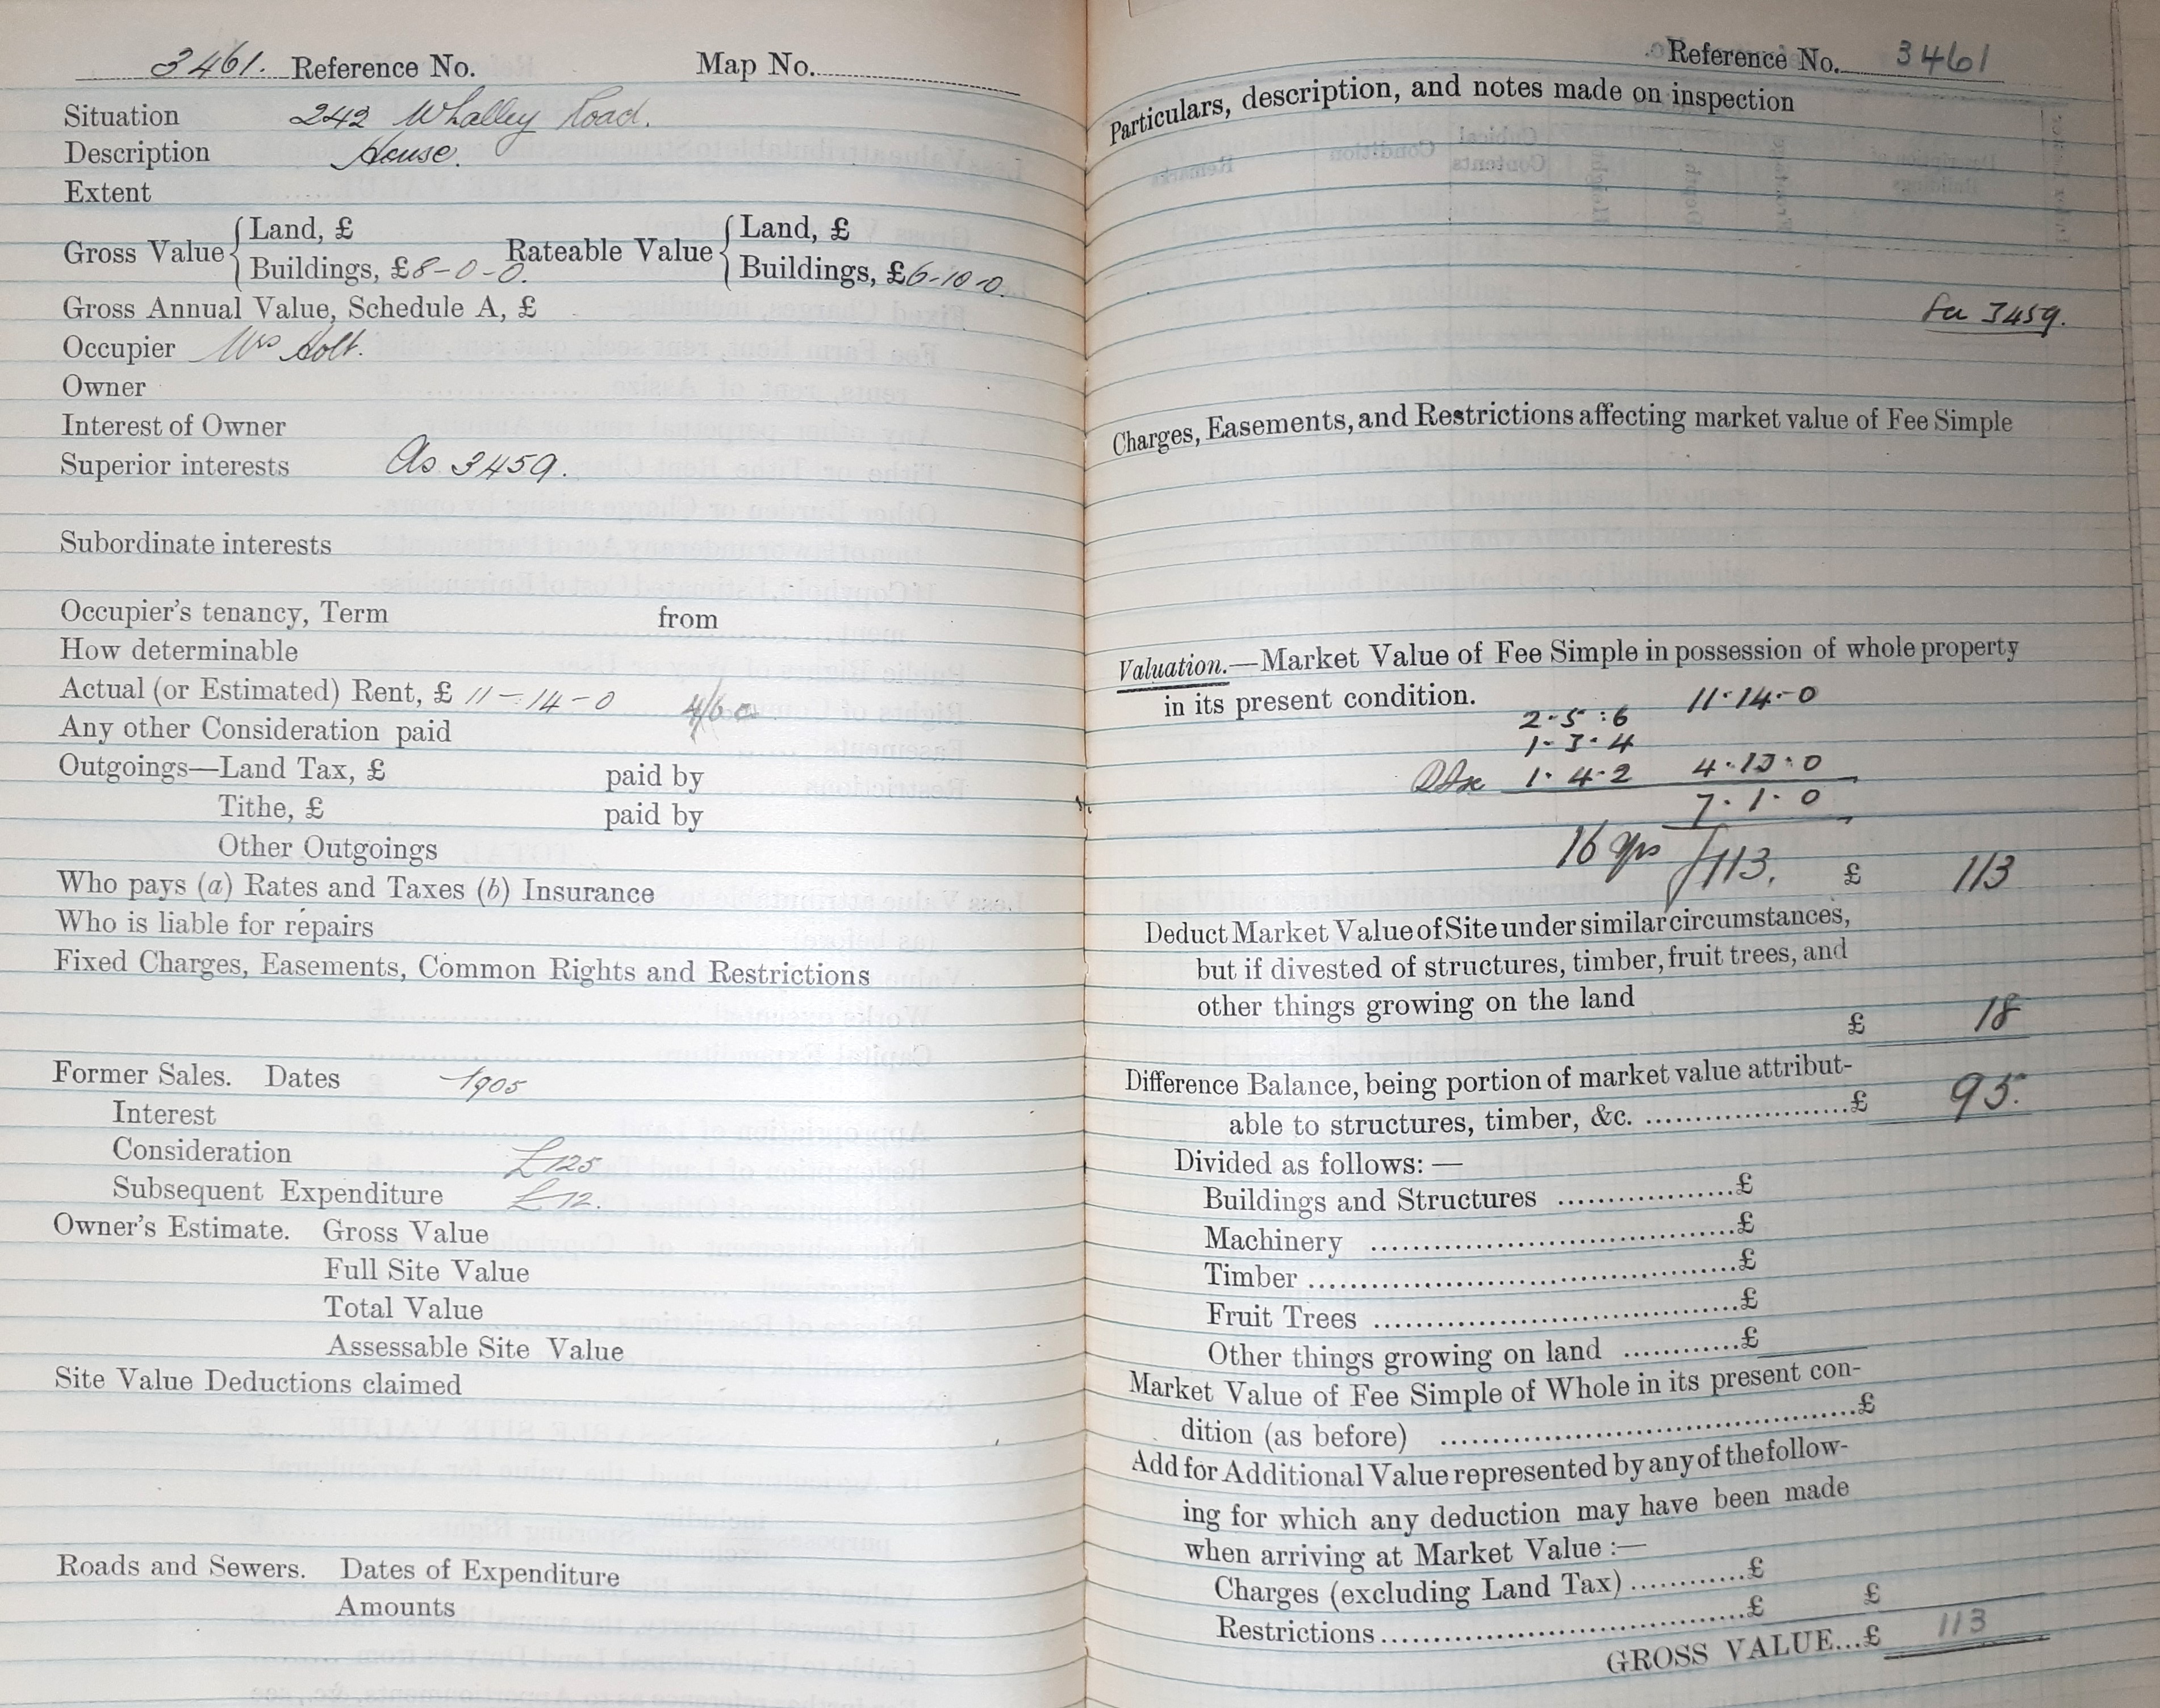 3461. Reference No. Map No.
Situation 242 Whalley Road.
Description House.
Extent
Gross Value { Land, £ Rateable Value { Land, £
Buildings, £8-0-0. Buildings, £6-10-0.
Gross Annual Value, Schedule A, £
Occupier Mrs Holt.
Owner
Interest of Owner
Superior interests As 3459.
Subordinate interests
Occupier's tenancy, Term from
How determinable
Actual (or Estimated) Rent, £ 11-14-0 4/6
Any other Consideration paid
Outgoings—Land Tax, £ paid by
Tithe, £ paid by
Other Outgoings
Who pays (a) Rates and Taxes (b) Insurance
Who is liable for repairs
Fixed Charges, Easements, Common Rights and Restrictions
Former Sales. Dates 1905
Interest
Consideration £125
Subsequent Expenditure £12.
Owner's Estimate. Gross Value
Full Site Value
Total Value
Assessable Site Value
Site Value Deductions claimed
Roads and Sewers. Dates of Expenditure
Amounts
Reference No. 3461
Particulars, description, and notes made on inspection
3459.
Charges, Easements, and Restrictions affecting market value of Fee Simple
Valuation.—Market Value of Fee Simple in possession of whole property
in its present condition. 11.14.0
2.5.6
1.3.4
1.4.2 4.13.0
7.1.0
16 yrs £113. £ 113
Deduct Market Value of Site under similar circumstances,
but if divested of structures, timber, fruit trees, and
other things growing on the land
£ 18
Difference Balance, being portion of market value attribut-
able to structures, timber, &c. ....................£ 95.
Divided as follows:—
Buildings and Structures ..................£
Machinery ......................................£
Timber .............................................£
Fruit Trees ......................................£
Other things growing on land ............£
Market Value of Fee Simple of Whole in its present con-
dition (as before) ...........................................£
Add for Additional Value represented by any of the follow-
ing for which any deduction may have been made
when arriving at Market Value:—
Charges (excluding Land Tax) ............£
Restrictions ......................................£ £
GROSS VALUE...£ 113